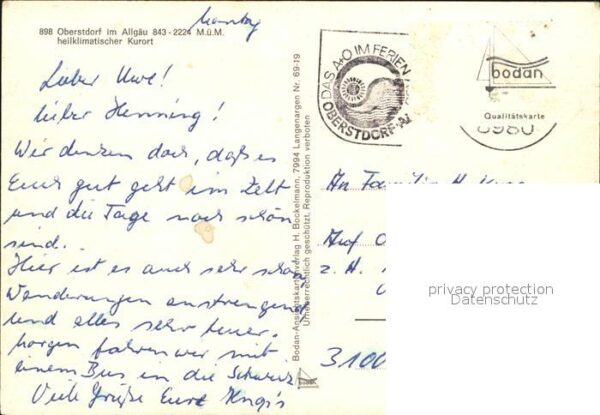 Montag
898 Oberstdorf im Allgäu 843 - 2224 M.ü.M.
heilklimatischer Kurort
Lieber Uwe!
lieber Henning!
Wir denken doch, daß es
Euch gut geht im Zelt
und die Tage noch schön
sind.
Hier ist es auch sehr schön
Wanderungen anstrengend
und alles sehr teuer.
Morgen fahren wir mit
einem Bus in die Schweiz
Viele Grüße Eure
Bodan-Ansichtskartenverlag H. Bockelmann, 7994 Langenargen Nr. 69-19
Urheberrechtlich geschützt, Reproduktion verboten
DAS A+O IM FERIEN
OBERSTDORF
bodan
Qualitätskarte
8980
An Familie H.
Auf
z. H.
3100
privacy protection
Datenschutz